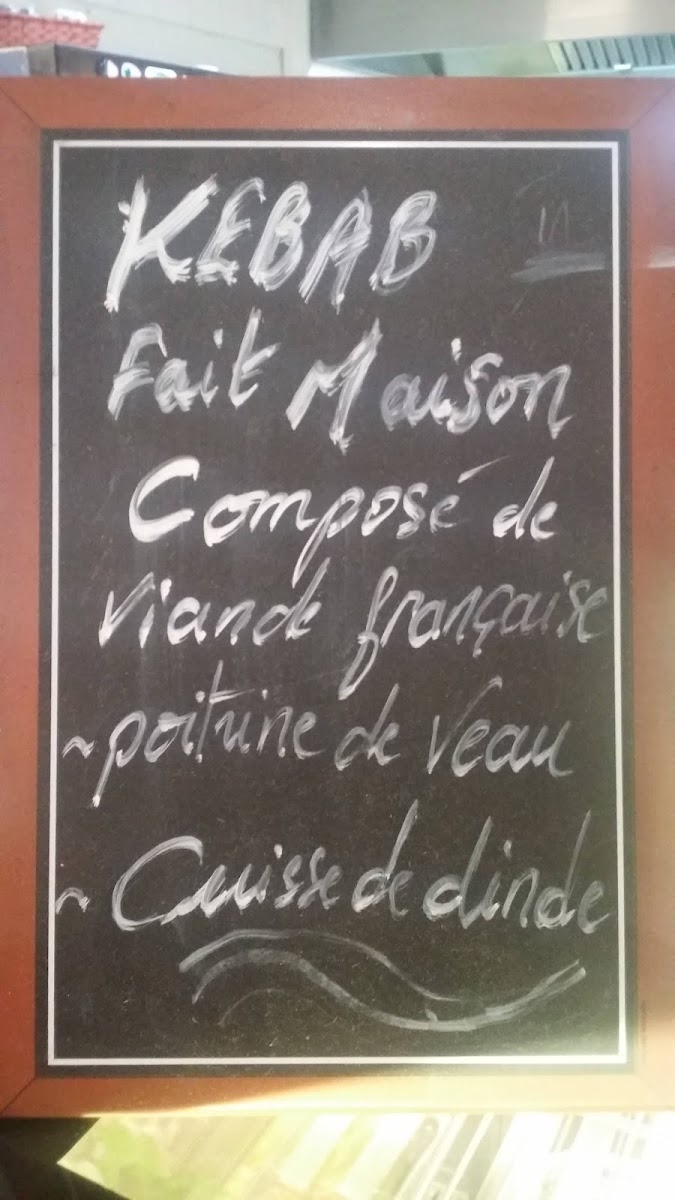 KEBAB
Fait Maison
Composé de
Viande française
~ poitrine de Veau
~ Cuisse de dinde